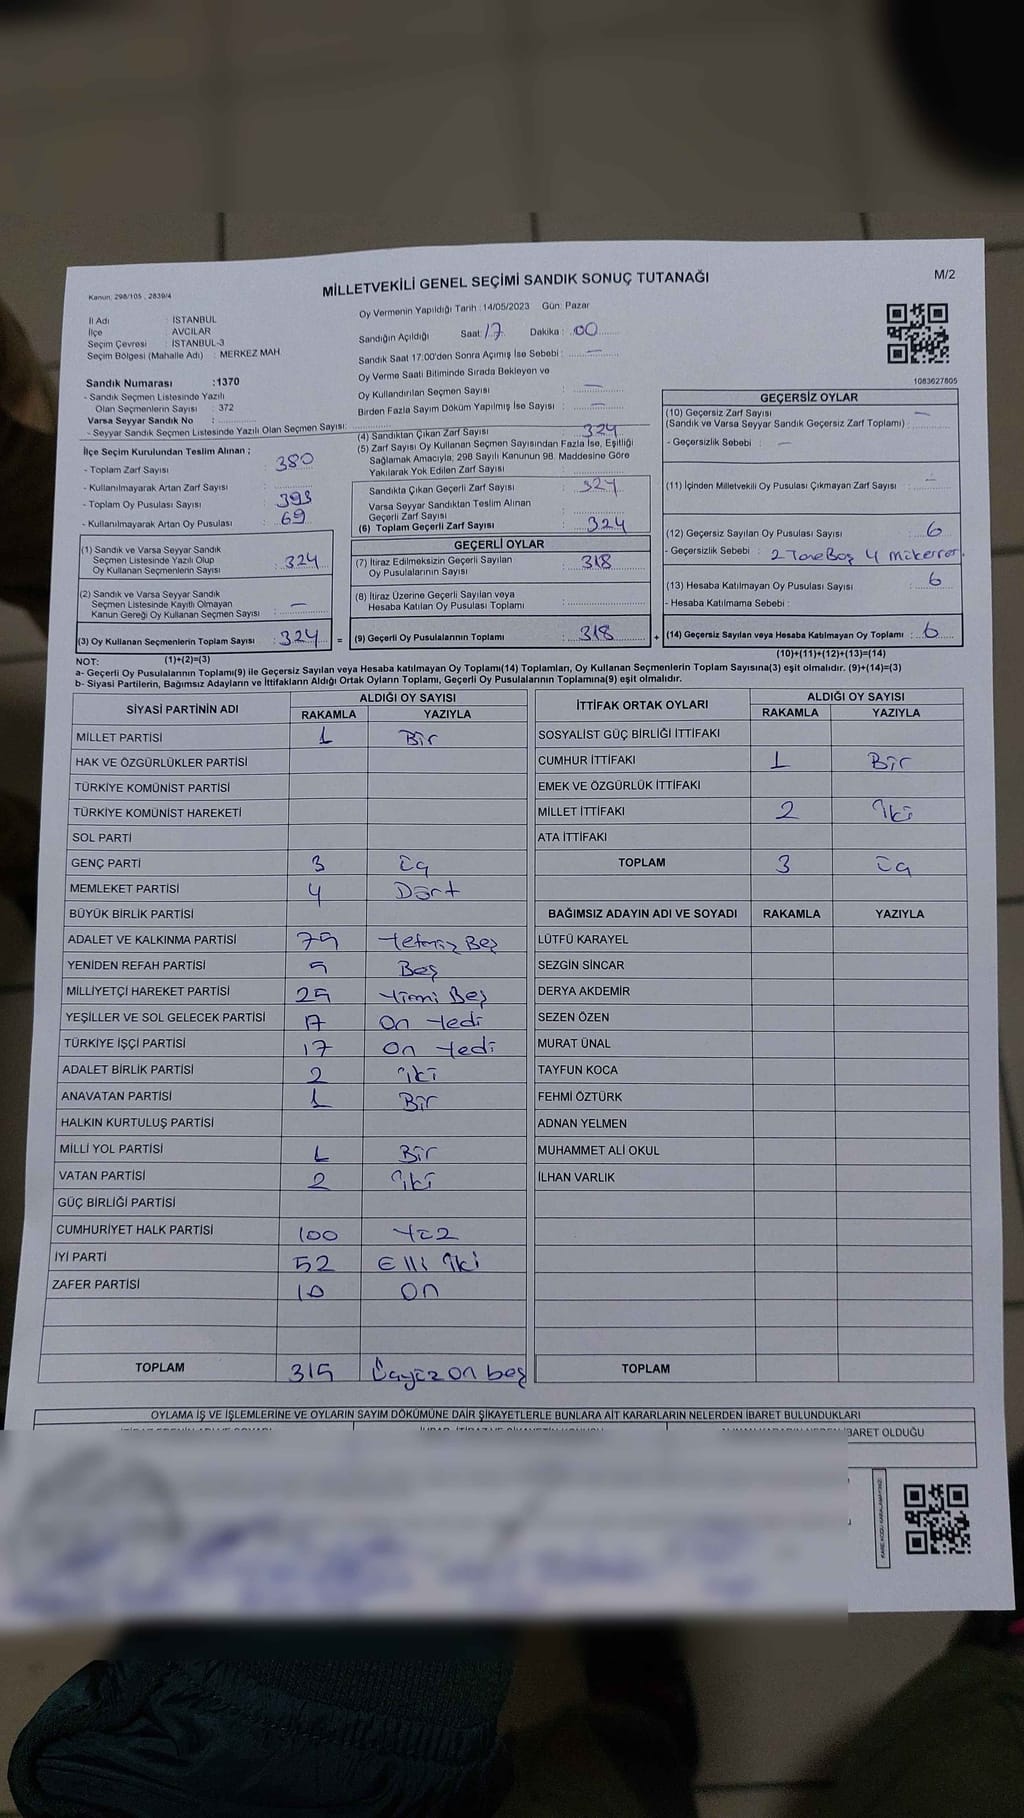 MİLLETVEKİLİ GENEL SEÇİMİ SANDIK SONUÇ TUTANAĞI
M/2
Kanun, 298/105 , 2839/4
İl Adı : İSTANBUL
İlçe : AVCILAR
Seçim Çevresi : İSTANBUL-3
Seçim Bölgesi (Mahalle Adı) : MERKEZ MAH
Sandık Numarası :1370
- Sandık Seçmen Listesinde Yazılı
Olan Seçmenlerin Sayısı : 372
Varsa Seyyar Sandık No :
- Seyyar Sandık Seçmen Listesinde Yazılı Olan Seçmen Sayısı:
İlçe Seçim Kurulundan Teslim Alınan ;
- Toplam Zarf Sayısı : 380
- Kullanılmayarak Artan Zarf Sayısı :
- Toplam Oy Pusulası Sayısı : 393
- Kullanılmayarak Artan Oy Pusulası : 69
(1) Sandık ve Varsa Seyyar Sandık
Seçmen Listesinde Yazılı Olup
Oy Kullanan Seçmenlerin Sayısı : 324
(2) Sandık ve Varsa Seyyar Sandık
Seçmen Listesinde Kayıtlı Olmayan
Kanun Gereği Oy Kullanan Seçmen Sayısı : —
(3) Oy Kullanan Seçmenlerin Toplam Sayısı : 324 =
(1)+(2)=(3)
Oy Vermenin Yapıldığı Tarih : 14/05/2023 Gün: Pazar
Sandığın Açıldığı Saat: 17 Dakika : 00
Sandık Saat 17:00'den Sonra Açımış İse Sebebi : —
Oy Verme Saati Bitiminde Sırada Bekleyen ve
Oy Kullandırılan Seçmen Sayısı : —
Birden Fazla Sayım Döküm Yapılmış İse Sayısı : —
(4) Sandıktan Çıkan Zarf Sayısı : 324
(5) Zarf Sayısı Oy Kullanan Seçmen Sayısından Fazla İse, Eşitliği
Sağlamak Amacıyla; 298 Sayılı Kanunun 98. Maddesine Göre
Yakılarak Yok Edilen Zarf Sayısı :
Sandıkta Çıkan Geçerli Zarf Sayısı : 324
Varsa Seyyar Sandıktan Teslim Alınan
Geçerli Zarf Sayısı :
(6) Toplam Geçerli Zarf Sayısı : 324
GEÇERLİ OYLAR
(7) İtiraz Edilmeksizin Geçerli Sayılan
Oy Pusulalarının Sayısı : 318
(8) İtiraz Üzerine Geçerli Sayılan veya
Hesaba Katılan Oy Pusulası Toplamı :
(9) Geçerli Oy Pusulalarının Toplamı : 318 +
1083627805
GEÇERSİZ OYLAR
(10) Geçersiz Zarf Sayısı —
(Sandık ve Varsa Seyyar Sandık Geçersiz Zarf Toplamı) :
- Geçersizlik Sebebi : —
(11) İçinden Milletvekili Oy Pusulası Çıkmayan Zarf Sayısı : —
(12) Geçersiz Sayılan Oy Pusulası Sayısı : 6
- Geçersizlik Sebebi : 2 Tane Boş 4 Mükerrer.
(13) Hesaba Katılmayan Oy Pusulası Sayısı : 6
- Hesaba Katılmama Sebebi :
(14) Geçersiz Sayılan veya Hesaba Katılmayan Oy Toplamı : 6
(10)+(11)+(12)+(13)=(14)
NOT:
a- Geçerli Oy Pusulalarının Toplamı(9) ile Geçersiz Sayılan veya Hesaba katılmayan Oy Toplamı(14) Toplamları, Oy Kullanan Seçmenlerin Toplam Sayısına(3) eşit olmalıdır. (9)+(14)=(3)
b- Siyasi Partilerin, Bağımsız Adayların ve İttifakların Aldığı Ortak Oyların Toplamı, Geçerli Oy Pusulalarının Toplamına(9) eşit olmalıdır.
SİYASİ PARTİNİN ADI ALDIĞI OY SAYISI
RAKAMLA YAZIYLA
MİLLET PARTİSİ 1 Bir
HAK VE ÖZGÜRLÜKLER PARTİSİ
TÜRKİYE KOMÜNİST PARTİSİ
TÜRKİYE KOMÜNİST HAREKETİ
SOL PARTİ
GENÇ PARTİ 3 üç
MEMLEKET PARTİSİ 4 Dört
BÜYÜK BİRLİK PARTİSİ
ADALET VE KALKINMA PARTİSİ 75 Yetmiş Beş
YENİDEN REFAH PARTİSİ 5 Beş
MİLLİYETÇİ HAREKET PARTİSİ 25 Yirmi Beş
YEŞİLLER VE SOL GELECEK PARTİSİ 17 On Yedi
TÜRKİYE İŞÇİ PARTİSİ 17 On Yedi
ADALET BİRLİK PARTİSİ 2 iki
ANAVATAN PARTİSİ 1 Bir
HALKIN KURTULUŞ PARTİSİ
MİLLİ YOL PARTİSİ 1 Bir
VATAN PARTİSİ 2 iki
GÜÇ BİRLİĞİ PARTİSİ
CUMHURİYET HALK PARTİSİ 100 Yüz
İYİ PARTİ 52 Elli iki
ZAFER PARTİSİ 10 On
TOPLAM 315 Üçyüz On beş
İTTİFAK ORTAK OYLARI ALDIĞI OY SAYISI
RAKAMLA YAZIYLA
SOSYALİST GÜÇ BİRLİĞİ İTTİFAKI
CUMHUR İTTİFAKI 1 Bir
EMEK VE ÖZGÜRLÜK İTTİFAKI
MİLLET İTTİFAKI 2 iki
ATA İTTİFAKI
TOPLAM 3 üç
BAĞIMSIZ ADAYIN ADI VE SOYADI RAKAMLA YAZIYLA
LÜTFÜ KARAYEL
SEZGİN SİNCAR
DERYA AKDEMİR
SEZEN ÖZEN
MURAT ÜNAL
TAYFUN KOCA
FEHMİ ÖZTÜRK
ADNAN YELMEN
MUHAMMET ALİ OKUL
İLHAN VARLIK
TOPLAM
OYLAMA İŞ VE İŞLEMLERİNE VE OYLARIN SAYIM DÖKÜMÜNE DAİR ŞİKAYETLERLE BUNLARA AİT KARARLARIN NELERDEN İBARET BULUNDUKLARI
İBARET OLDUĞU